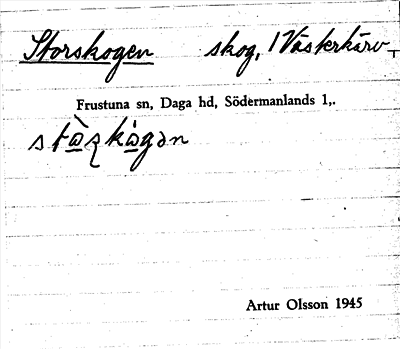 Storskogen skog, 1 Västerkärv
Frustuna sn, Daga hd, Södermanlands l,.
Artur Olsson 1945